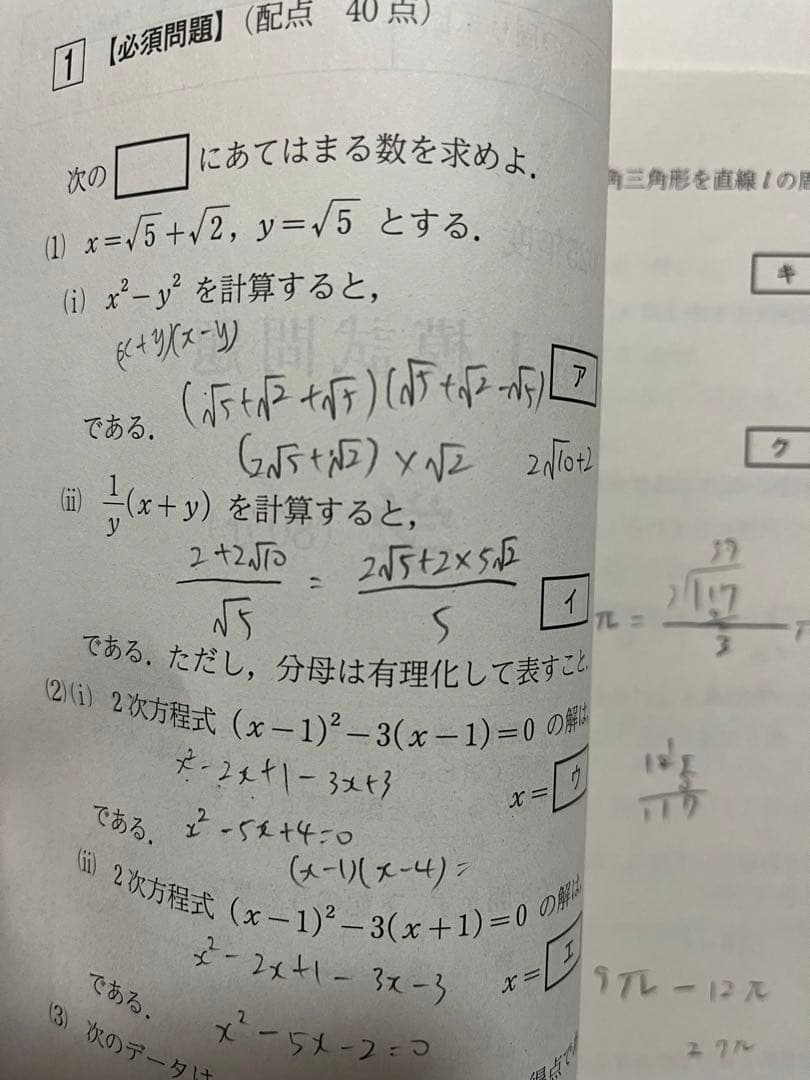 1 【必須問題】(配点 40点)
次の□にあてはまる数を求めよ.
(1) x=√5+√2, y=√5 とする.
(i) x²-y² を計算すると,
(x+y)(x-y)
ア
(√5+√2+√5)(√5+√2-√5)
である.
(2√5+√2)×√2 2√10+2
(ii) 1/y(x+y) を計算すると,
2+2√10/√5 = 2√5+2×5√2/5
イ
である. ただし, 分母は有理化して表すこと.
(2)(i) 2次方程式 (x-1)²-3(x-1)=0 の解は,
x²-2x+1-3x+3
x=ウ
である. x²-5x+4=0
(x-1)(x-4)=
(ii) 2次方程式 (x-1)²-3(x+1)=0 の解は,
x²-2x+1-3x-3
x=エ
である.
x²-5x-2=0
(3) 次のデータは
得点で
角三角形を直線lの周
キ
ク
39
117
π=
3
117
9π-12π
27π